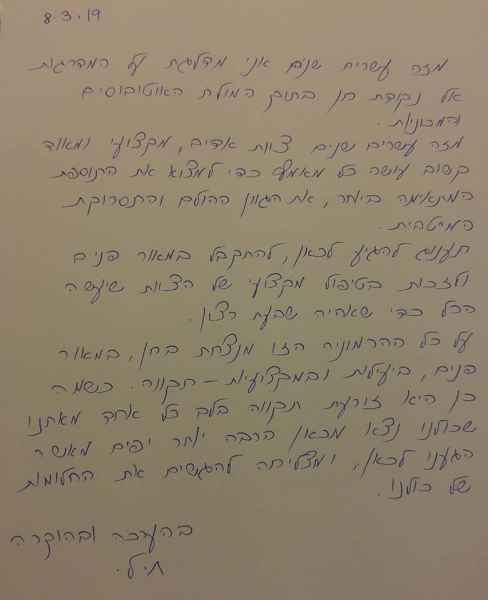 8.3.19
מזה עשרים שנים אני מדלגת על המדרגות
אל נקודת חן בתוך המולת האוטובוסים
והמכוניות.
מזה עשרים שנים צוות אדיב, מקצועי ומאוד
קשוב עושה כל מאמץ כדי למצוא את התוספת
המתאימה ביותר, את הגוון ההולם והתסרוקת
המיטבית.
תענוג להגיע לכאן, להתקבל במאור פנים
ולזכות בטיפול מקצועי של הצוות שיעשה
הכל כדי שאהיה שבעת רצון.
על כל ההרמוניה הזו מנצחת בחן, במאור
פנים, ביעילות ובמקצועיות - תקווה. כשמה
כן היא זורעת תקווה בלב כל אחד מאתנו
שכולנו נצא מכאן הרבה יותר יפים מאשר
הגענו לכאן, ומצליחה להגשים את החלומות
של כולנו.
בהערכה ובהוקרה